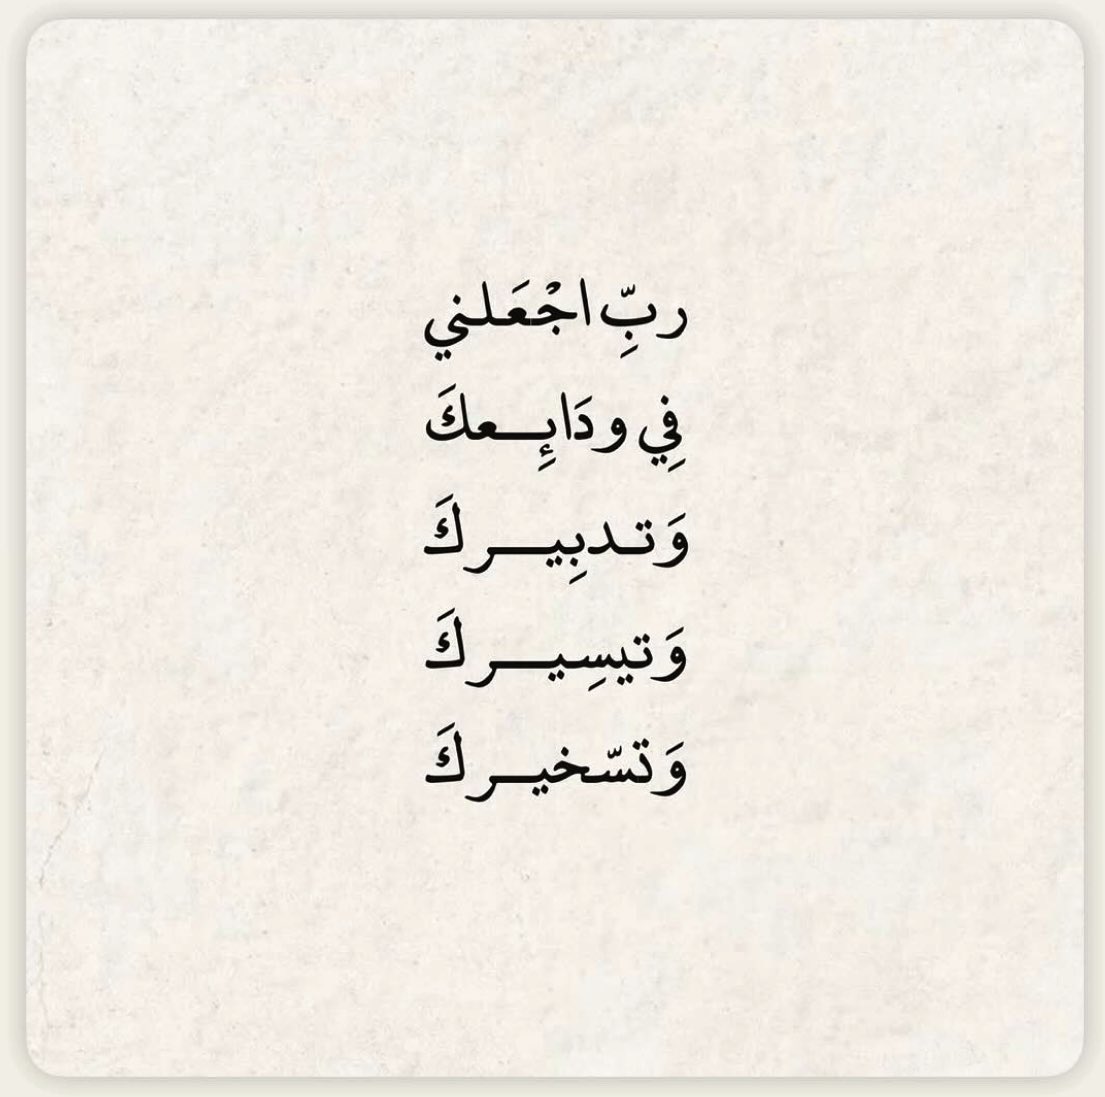 ربِّ اجْعَلني
فِي ودَائِعكَ
وَتدبِيركَ
وَتيسِيركَ
وَتسّخيركَ